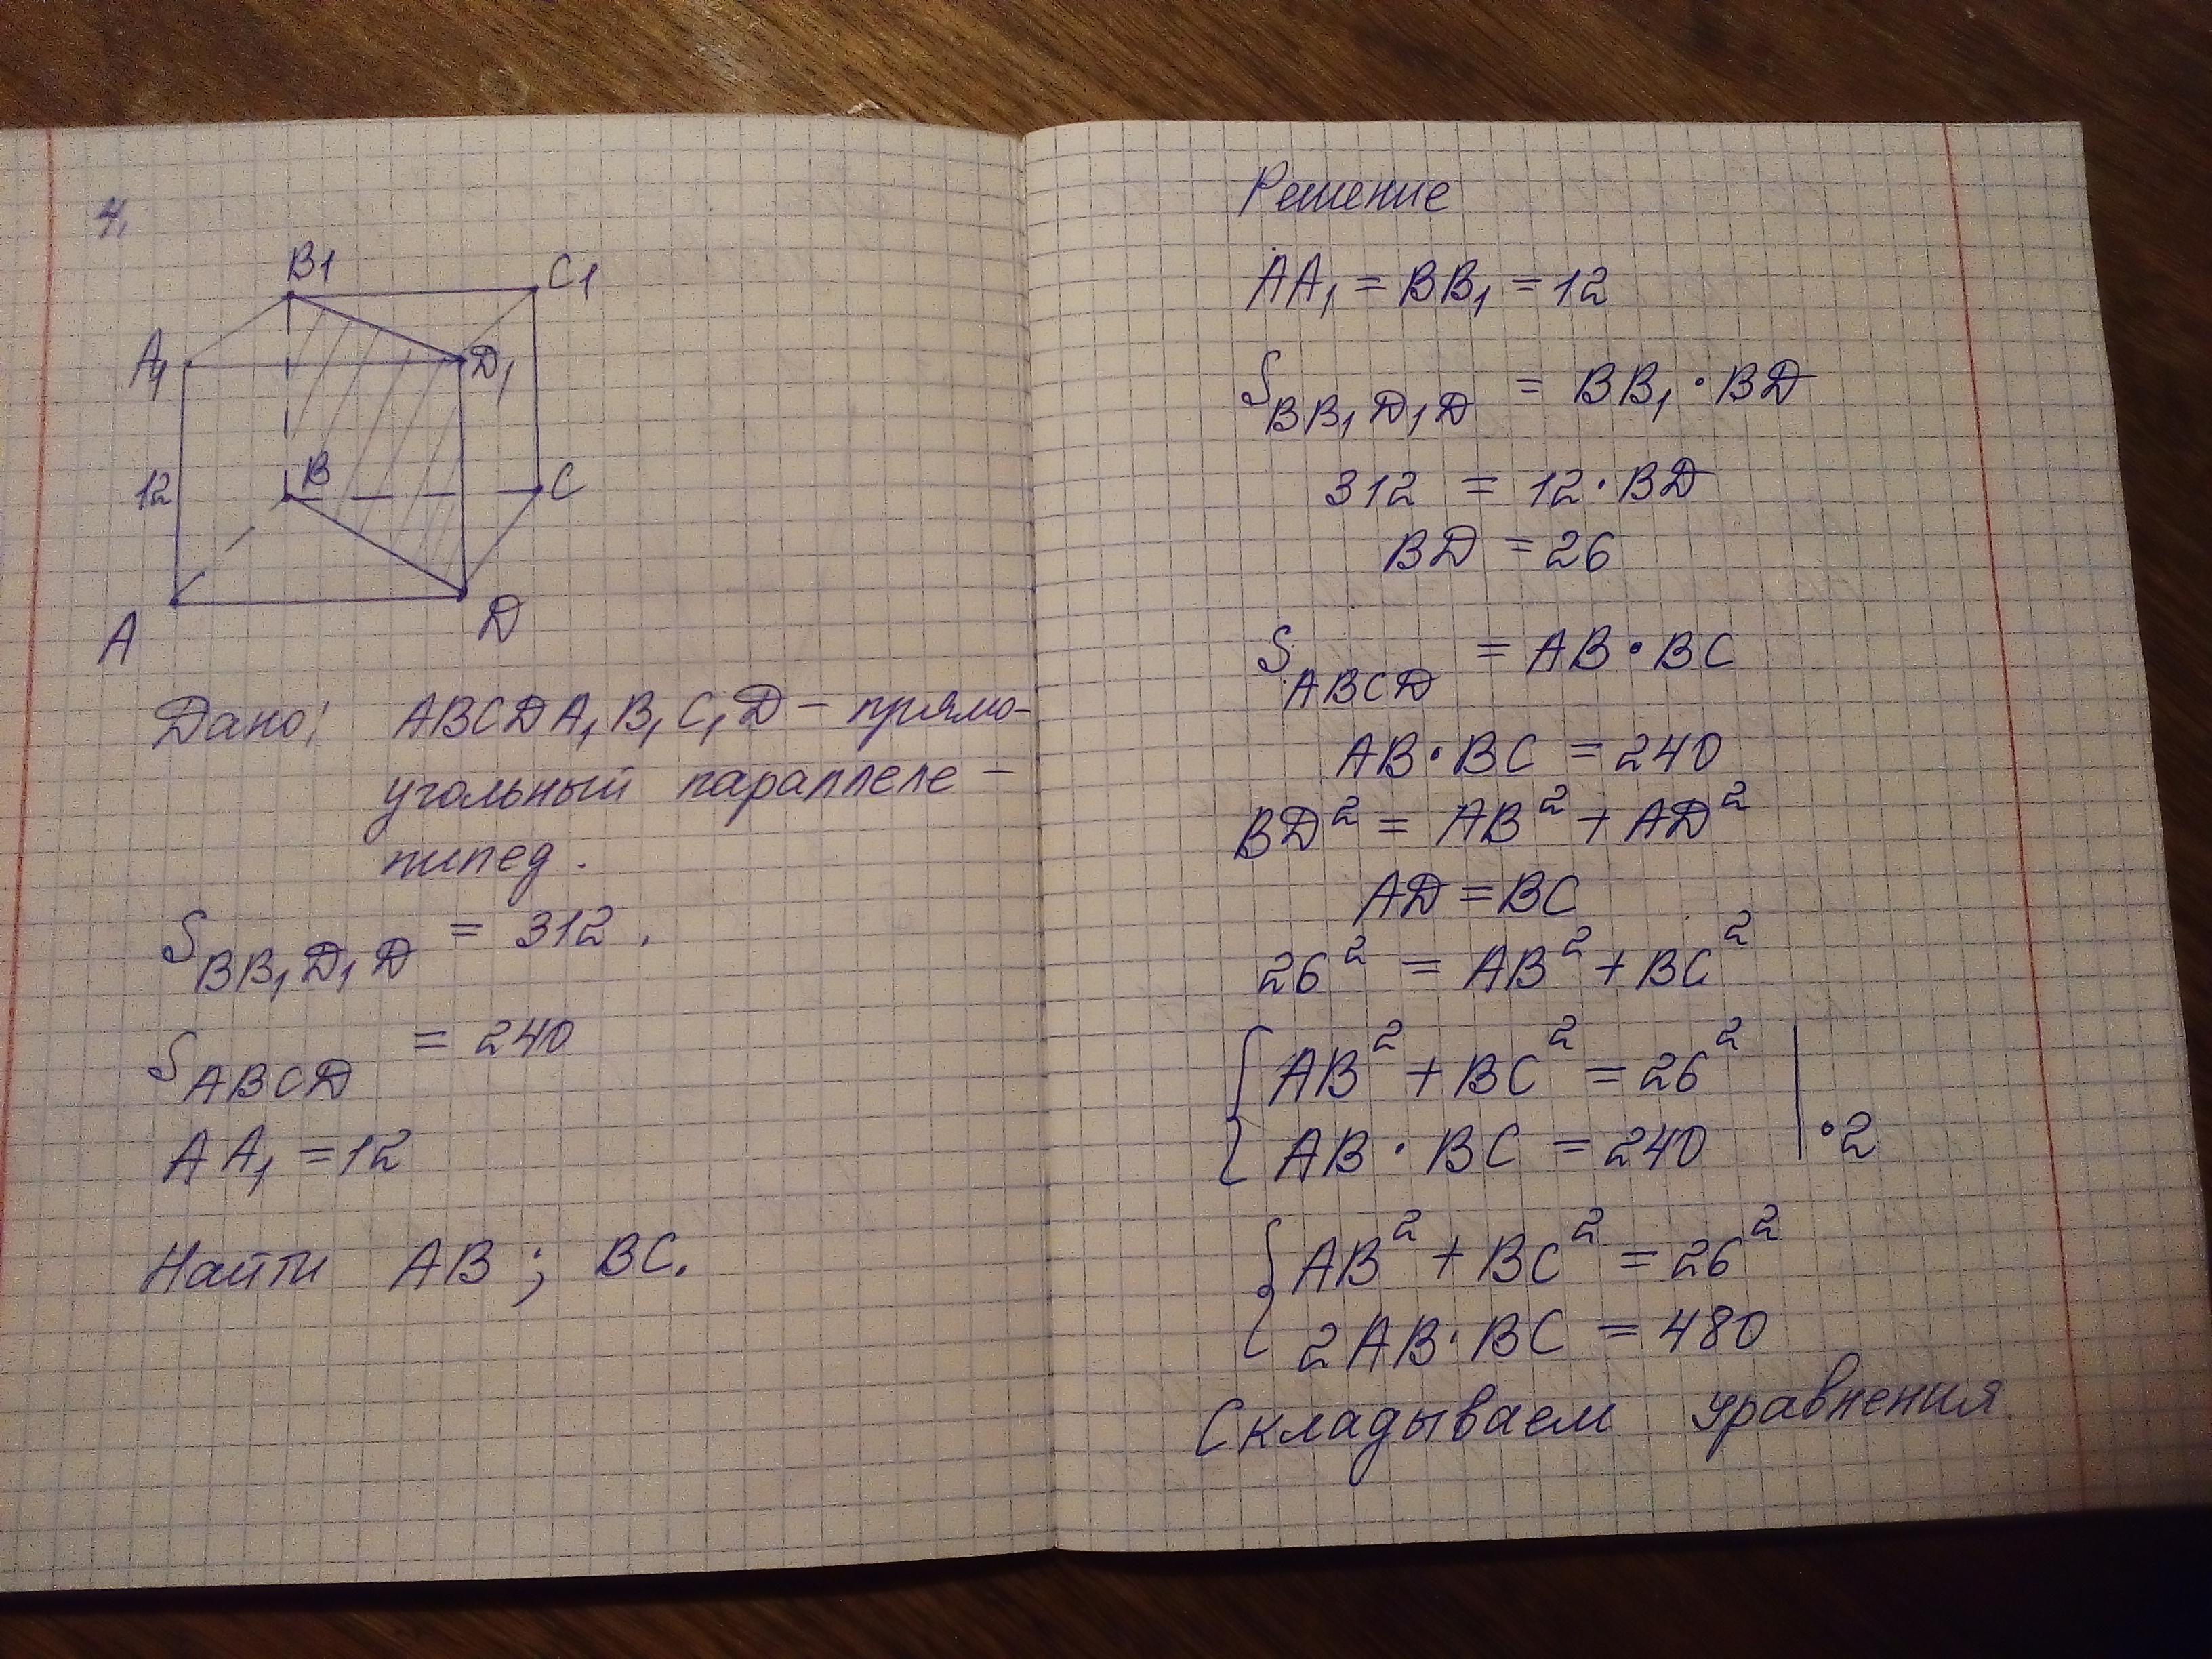 4.
B1
C1
A1
D1
12
B
C
A
D
Дано: ABCDA₁B₁C₁D – прямо-
угольный параллеле –
пипед.
S BB₁D₁D = 312.
S ABCD = 240
AA₁ = 12
Найти AB ; BC.
Решение
AA₁ = BB₁ = 12
S BB₁D₁D = BB₁ · BD
312 = 12 · BD
BD = 26
S ABCD = AB · BC
AB · BC = 240
BD² = AB² + AD²
AD = BC
26² = AB² + BC²
{ AB² + BC² = 26² |
{ AB · BC = 240 | · 2
{ AB² + BC² = 26²
{ 2AB · BC = 480
Складываем уравнения